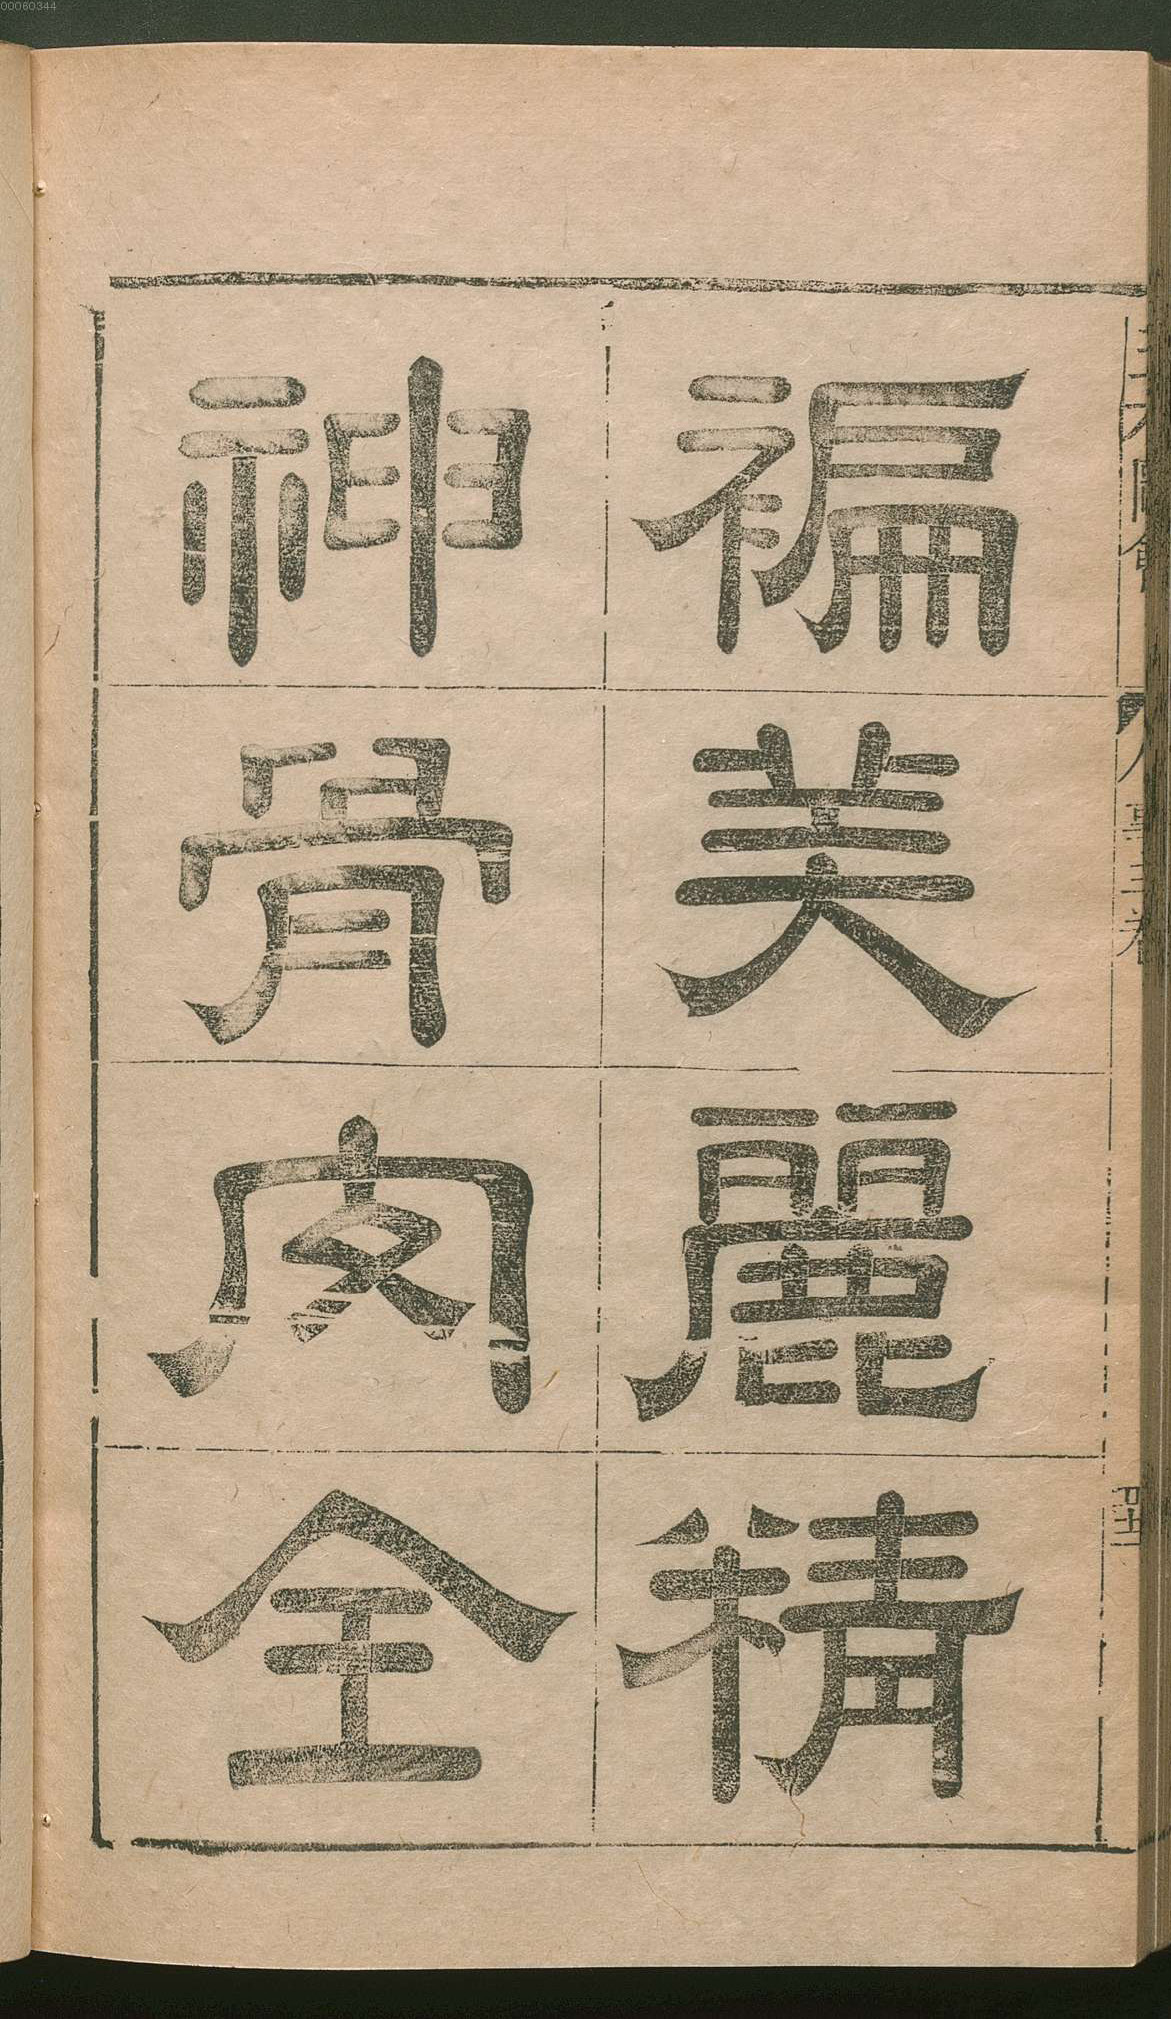 褊美麗精
神骨肉全
00060344